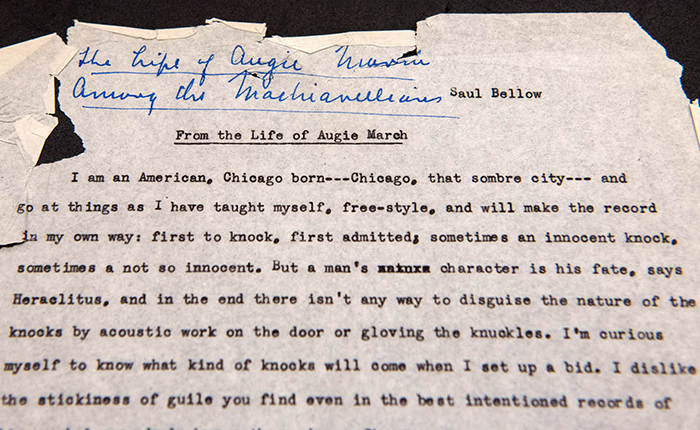 The Life of Augie March
Among the Machiavellians
Saul Bellow
From the Life of Augie March
I am an American, Chicago born---Chicago, that sombre city--- and
go at things as I have taught myself, free-style, and will make the record
in my own way: first to knock, first admitted; sometimes an innocent knock,
sometimes a not so innocent. But a man's character is his fate, says
Heraclitus, and in the end there isn't any way to disguise the nature of the
knocks by acoustic work on the door or gloving the knuckles. I'm curious
myself to know what kind of knocks will come when I set up a bid. I dislike
the stickiness of guile you find even in the best intentioned records of